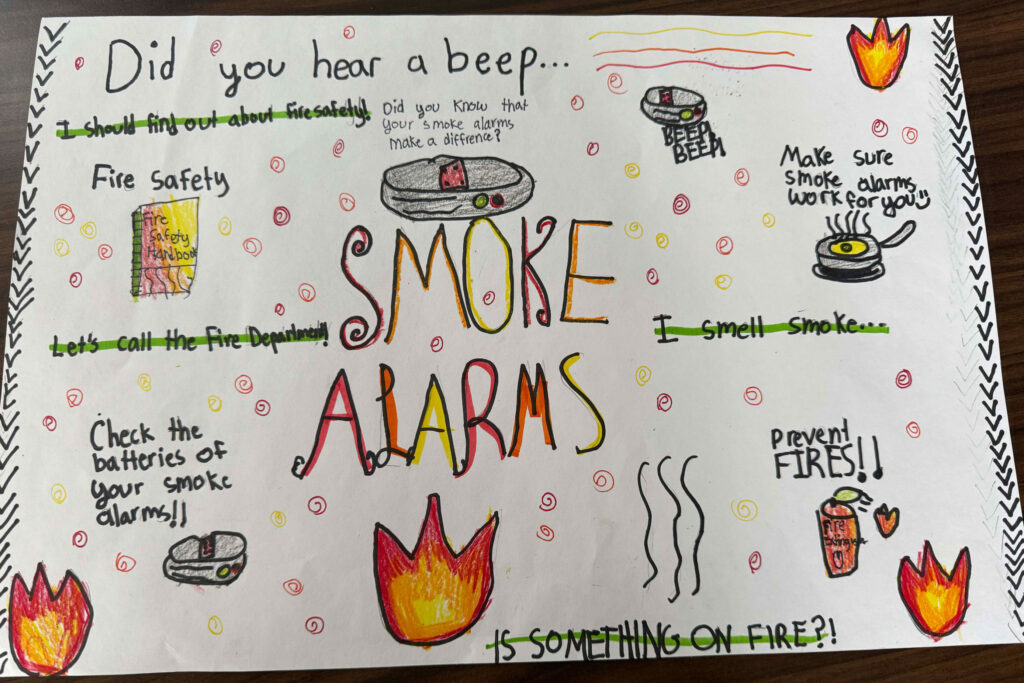 Did you hear a beep...
I should find out about fire safety!
Did you know that
your smoke alarms
make a diffrence?
BEEP!
BEEP!
Make sure
smoke alarms
work for you
Fire safety
Fire
Safety
Handbook
SMOKE
ALARMS
Let's call the Fire Department!
I smell smoke...
Check the
batteries of
your smoke
alarms!!
Prevent
FIRES!!
Fire
IS SOMETHING ON FIRE?!